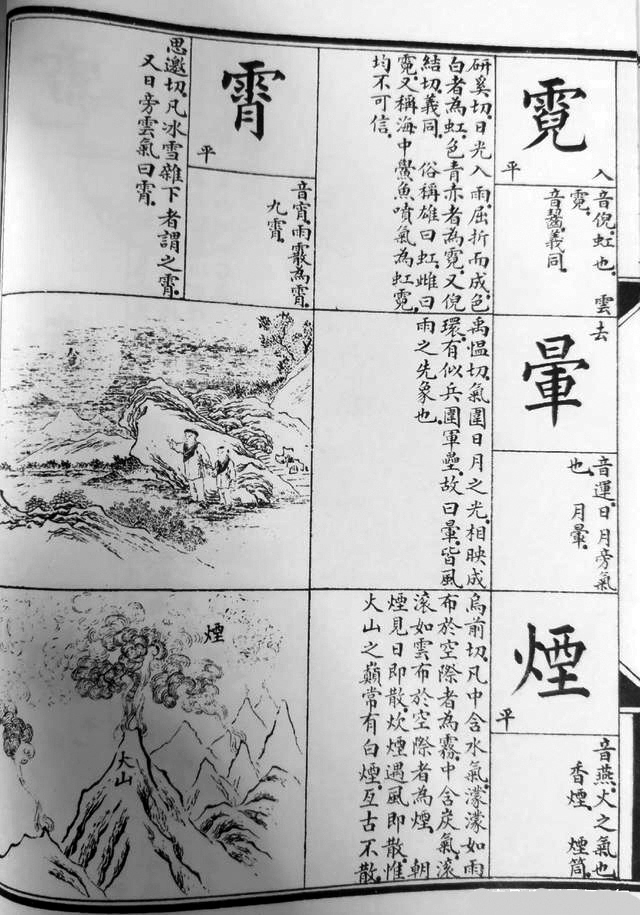 霓
入
平
音倪虹也 雲
霓
音齧義同
研奚切日光入雨屈折而成色
白者為虹色青赤者為霓又倪
結切義同 俗稱雄曰虹雌曰
霓又稱海中鱟魚噴氣為虹霓
均不可信
霄
平
音宵雨霰為霄
九霄
思邀切凡冰雪雜下者謂之霄
又日旁雲氣曰霄
去
暈
音運日月旁氣
也 月暈
禹愠切氣圍日月之光相映成
環有似兵圍軍壘故曰暈皆風
雨之先象也
煙
平
音燕火之氣也
香煙 煙筒
烏前切凡中含水氣濛濛如雨
布於空際者為霧中含炭氣滾
滾如雲布於空際者為煙 朝
煙見日即散炊煙遇風即散惟
火山之巔常有白煙亙古不散
煙
火山